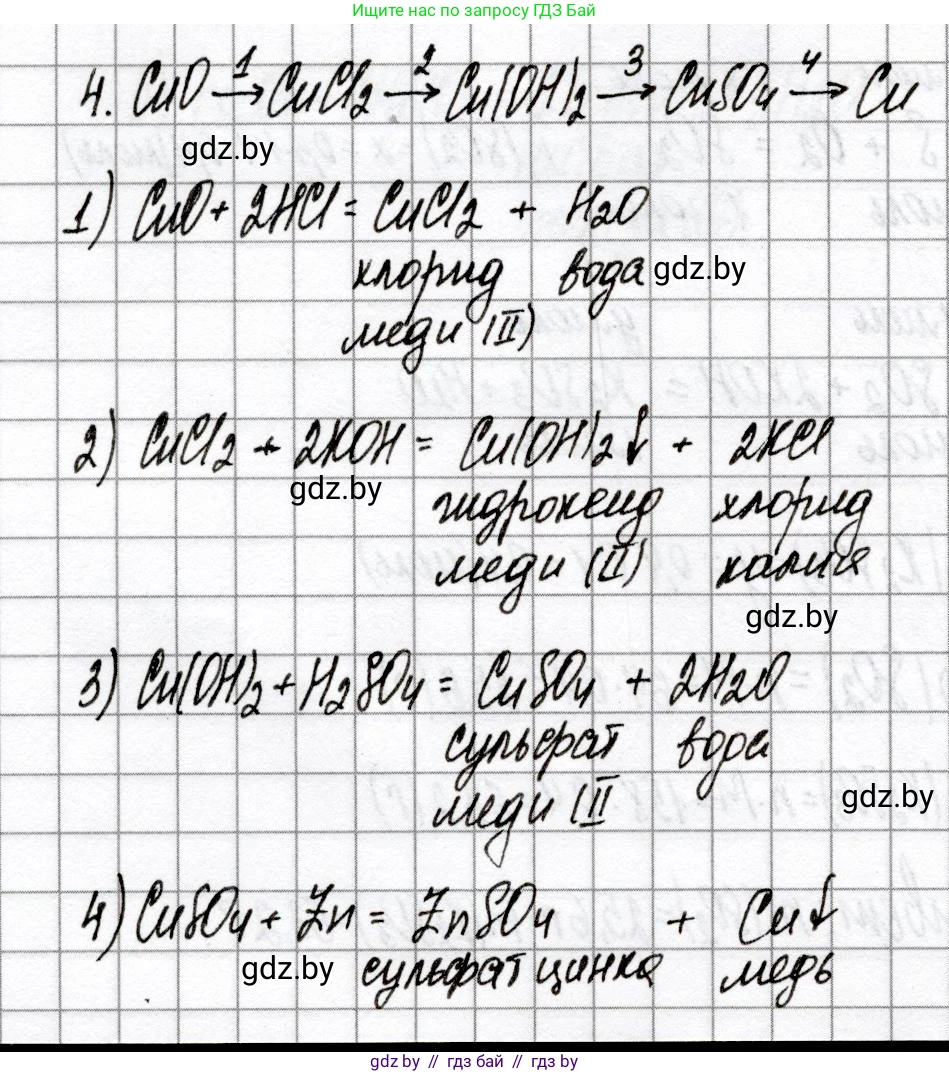 Ищите нас по запросу ГДЗ Бай
4. CuO →1 CuCl₂ →2 Cu(OH)₂ →3 CuSO₄ →4 Cu
gdz.by
1) CuO + 2HCl = CuCl₂ + H₂O
хлорид вода gdz.by
меди (II)
2) CuCl₂ + 2KOH = Cu(OH)₂↓ + 2KCl
gdz.by
гидроксид хлорид
меди (II) калия
gdz.by
3) Cu(OH)₂ + H₂SO₄ = CuSO₄ + 2H₂O
сульфат вода
меди (II
gdz.by
4) CuSO₄ + Zn = ZnSO₄ + Cu↓
gdz.by сульфат цинка медь
gdz.by // гдз бай // gdz.by